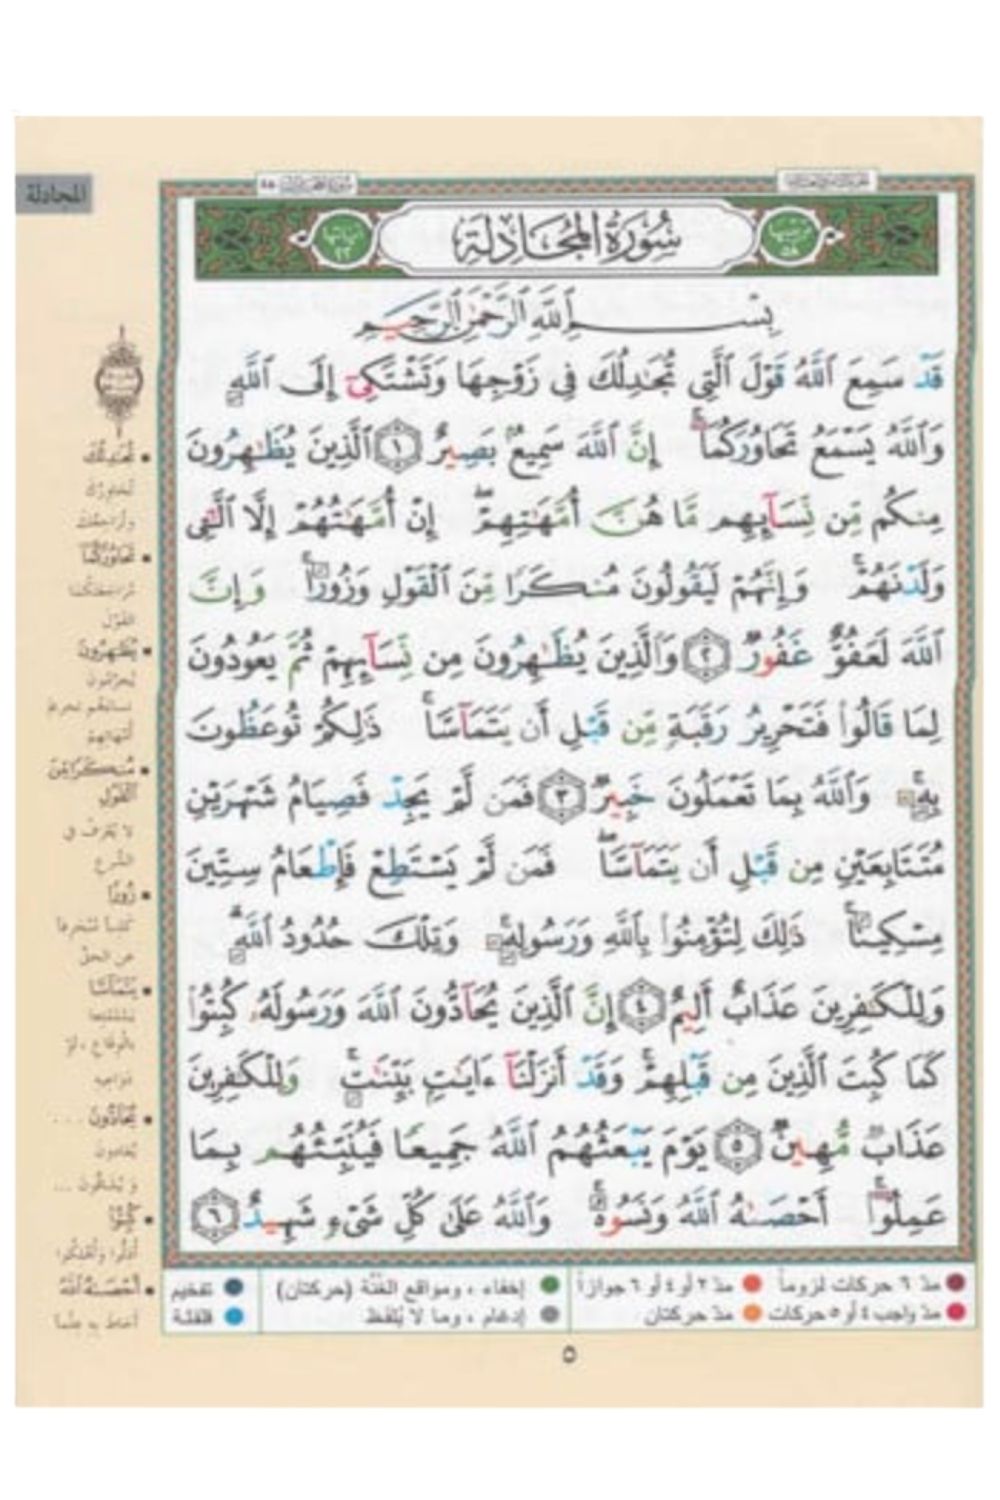 المجادلة
سُورَةُ المُجَادِلَةِ
بِسْمِ ٱللَّهِ ٱلرَّحْمَٰنِ ٱلرَّحِيمِ
قَدْ سَمِعَ ٱللَّهُ قَوْلَ ٱلَّتِى تُجَٰدِلُكَ فِى زَوْجِهَا وَتَشْتَكِىٓ إِلَى ٱللَّهِ
وَٱللَّهُ يَسْمَعُ تَحَاوُرَكُمَآ ۚ إِنَّ ٱللَّهَ سَمِيعٌۢ بَصِيرٌ ١ ٱلَّذِينَ يُظَٰهِرُونَ
مِنكُم مِّن نِّسَآئِهِم مَّا هُنَّ أُمَّهَٰتِهِمْ ۖ إِنْ أُمَّهَٰتُهُمْ إِلَّا ٱلَّٰٓـِٔى
وَلَدْنَهُمْ ۚ وَإِنَّهُمْ لَيَقُولُونَ مُنكَرًا مِّنَ ٱلْقَوْلِ وَزُورًا ۚ وَإِنَّ
ٱللَّهَ لَعَفُوٌّ غَفُورٌ ٢ وَٱلَّذِينَ يُظَٰهِرُونَ مِن نِّسَآئِهِمْ ثُمَّ يَعُودُونَ
لِمَا قَالُوا۟ فَتَحْرِيرُ رَقَبَةٍ مِّن قَبْلِ أَن يَتَمَآسَّا ۚ ذَٰلِكُمْ تُوعَظُونَ
بِهِۦ ۚ وَٱللَّهُ بِمَا تَعْمَلُونَ خَبِيرٌ ٣ فَمَن لَّمْ يَجِدْ فَصِيَامُ شَهْرَيْنِ
مُتَتَابِعَيْنِ مِن قَبْلِ أَن يَتَمَآسَّا ۖ فَمَن لَّمْ يَسْتَطِعْ فَإِطْعَامُ سِتِّينَ
مِسْكِينًا ۚ ذَٰلِكَ لِتُؤْمِنُوا۟ بِٱللَّهِ وَرَسُولِهِۦ ۚ وَتِلْكَ حُدُودُ ٱللَّهِ ۗ
وَلِلْكَٰفِرِينَ عَذَابٌ أَلِيمٌ ٤ إِنَّ ٱلَّذِينَ يُحَآدُّونَ ٱللَّهَ وَرَسُولَهُۥ كُبِتُوا۟
كَمَا كُبِتَ ٱلَّذِينَ مِن قَبْلِهِمْ ۚ وَقَدْ أَنزَلْنَآ ءَايَٰتٍۭ بَيِّنَٰتٍ ۚ وَلِلْكَٰفِرِينَ
عَذَابٌ مُّهِينٌ ٥ يَوْمَ يَبْعَثُهُمُ ٱللَّهُ جَمِيعًا فَيُنَبِّئُهُم بِمَا
عَمِلُوٓا۟ ۚ أَحْصَىٰهُ ٱللَّهُ وَنَسُوهُ ۚ وَٱللَّهُ عَلَىٰ كُلِّ شَىْءٍ شَهِيدٌ ٦
• تُجَٰدِلُكَ
تُحَاوِرُكَ
وتُرَاجِعُكَ
• تَحَاوُرَكُمَا
مُرَاجَعَتَكُمَا
القَوْلَ
• يُظَٰهِرُونَ
يُحَرِّمُونَ
نساءَهُم تحريمَ
أُمَّهَاتِهِمْ
• مُنكَرًا مِّنَ
ٱلْقَوْلِ
لا يُعْرَفُ في
الشَّرع
• زُورًا
كَذِبًا مُنحرفا
عن الحقِّ
• يَتَمَآسَّا
يَسْتَمْتِعا
بالوِقاعِ، أوْ
دَوَاعِيه
• يُحَآدُّونَ ...
يُعادون
وَيُشاقُّونَ ...
• كُبِتُوا۟
أُذِلُّوا وأُهْلِكُوا
• أَحْصَىٰهُ ٱللَّهُ
أحَاطَ بِه عِلْمًا
مدّ ٦ حركات لزوماً
مدّ ٢ أو ٤ أو ٦ جوازاً
إخفاء، ومواقع الغُنَّة (حركتان)
تفخيم
مدّ واجب ٤ أو ٥ حركات
مدّ حركتان
إدغام، وما لا يُلفَظ
قلقلة
٥